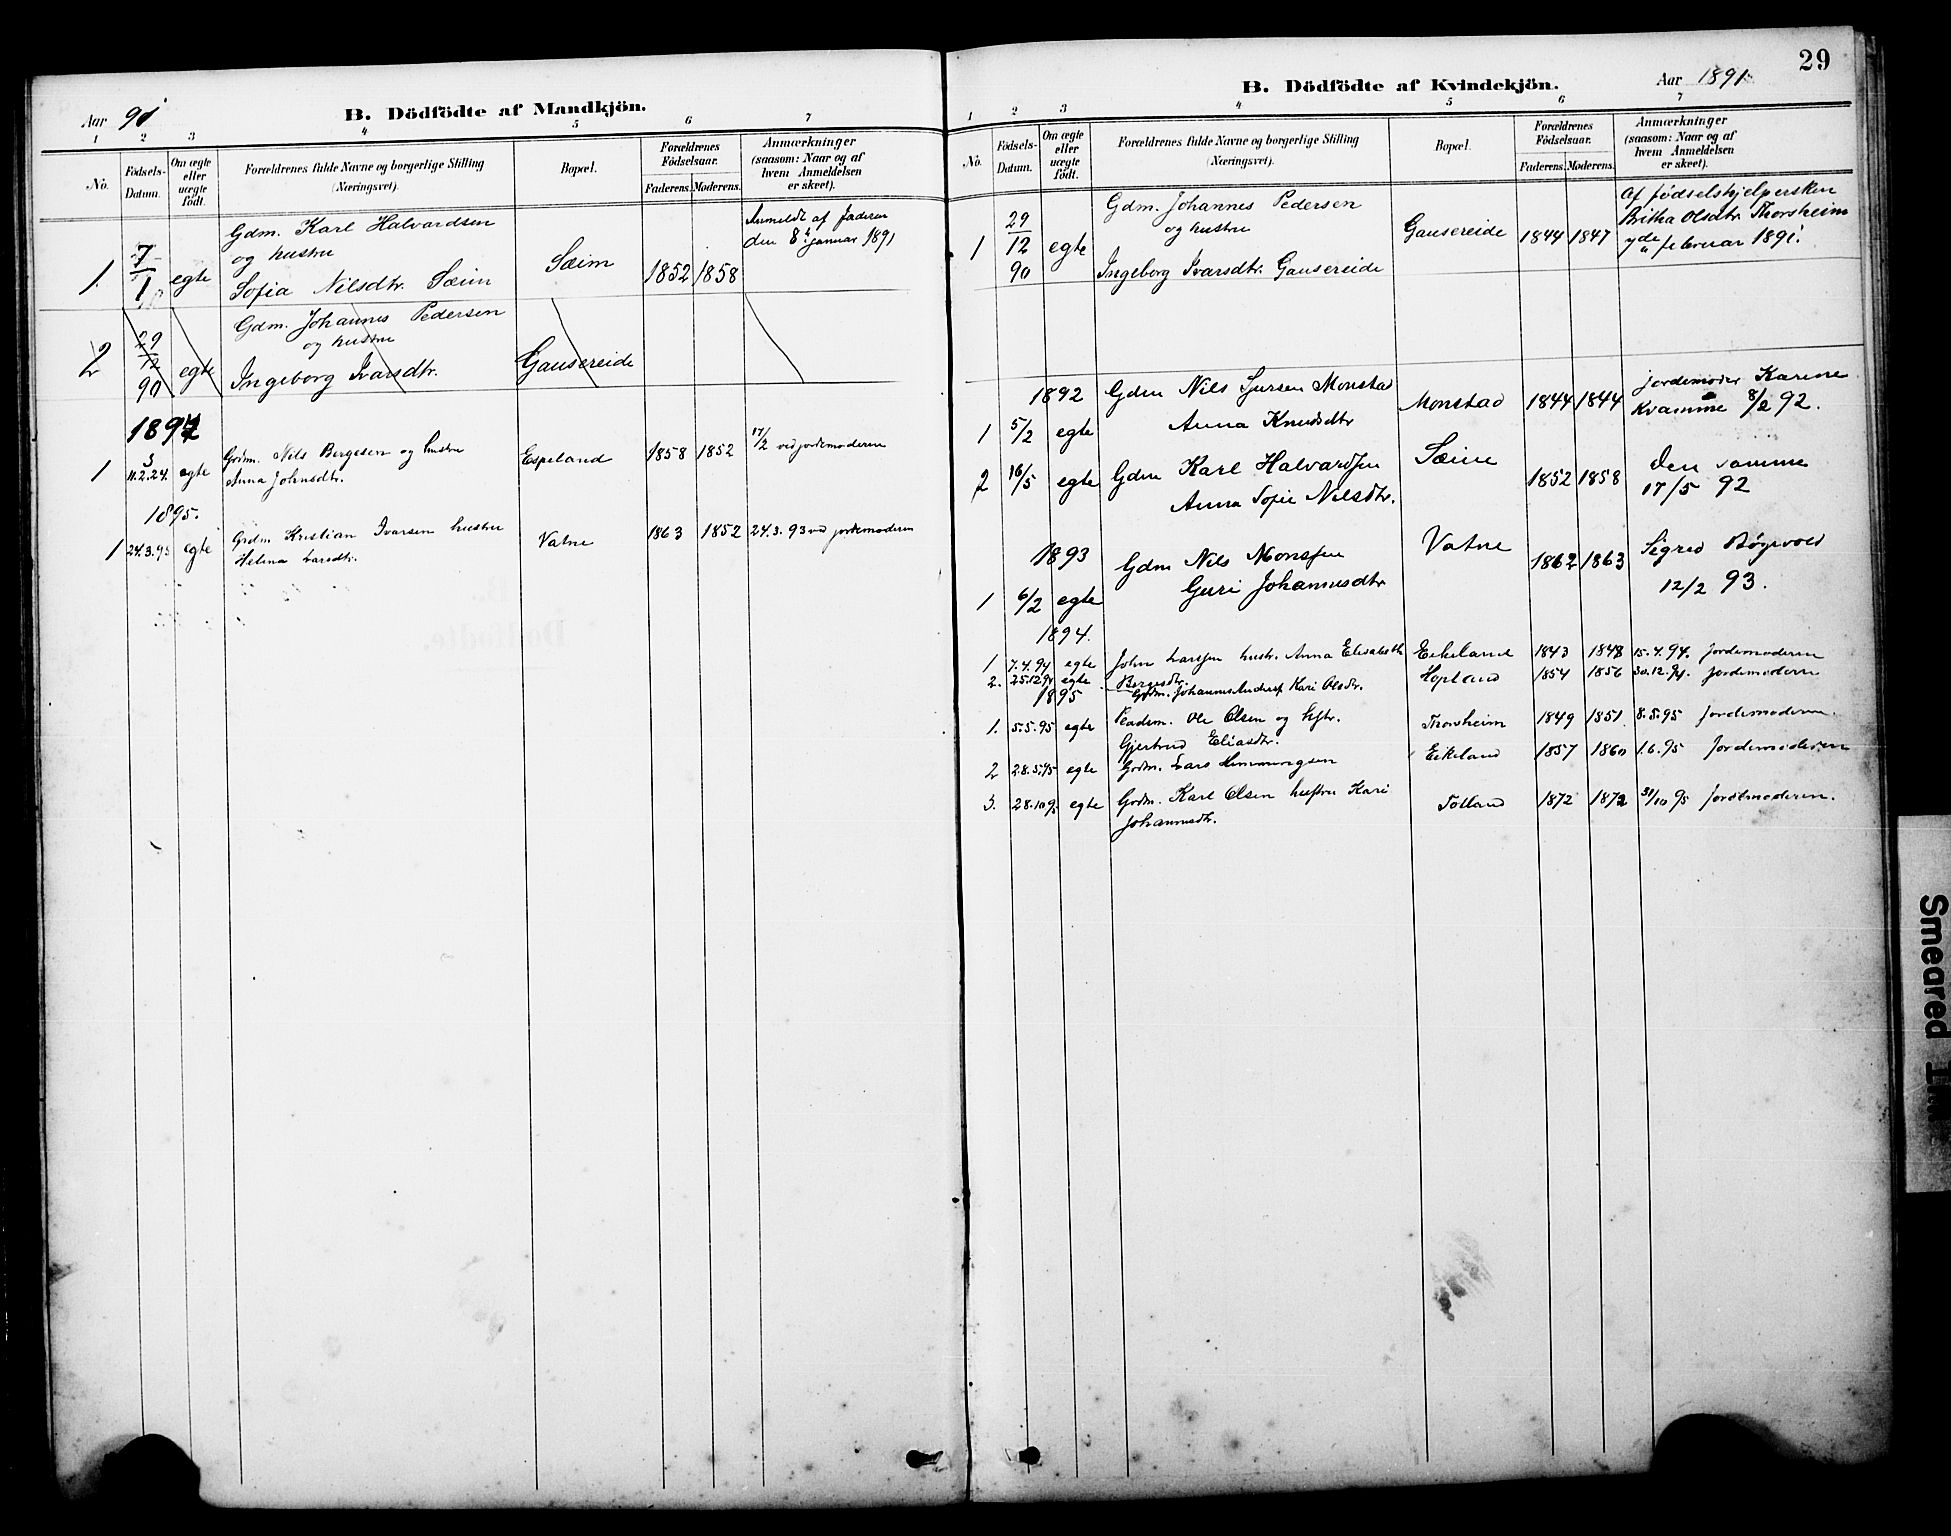 Aar 91
B. Dödfödte af Mandkjön.
1 2 3 4 5 6 7
No.
Födsels-Datum.
Om ægte eller uægte født.
Forældrenes fulde Navne og borgerlige Stilling (Næringsvei).
Bopæl.
Forældrenes Födselsaar.
Faderens. Moderens.
Anmærkninger (saasom: Naar og af hvem Anmeldelsen er skeet).
Gdm. Karl Halvardsen Anmeldt af faderen
7 og hustru den 8de januar 1891
1. 1 egte Sofia Nilsdtr. Sæim Sæim 1852 1858
29 Gdm. Johannes Pedersen
2 12 og hustru
90 egte Ingeborg Ivarsdtr. Gausereide
1894
1 11.2.24. egte Grdm. Nils Bergesen og hustru Espeland 1858 1852 17/2 ved jordemoderen
Anna Johnsdtr.
1895.
1 24.3.95 egte Grdm. Kristian Ivarsen hustru Vatne 1863 1852 24.3.93 ved jordemoderen
Helena Larsdtr.
29
B. Dödfödte af Kvindekjön.
Aar 1891
1 2 3 4 5 6 7
No.
Födsels-Datum.
Om ægte eller uægte födt.
Forældrenes fulde Navne og borgerlige Stilling (Næringsvei).
Bopæl.
Forældrenes Födselsaar.
Faderens. Moderens.
Anmærkninger (saasom: Naar og af hvem Anmeldelsen er skeet).
29 Gdm. Johannes Pedersen Af fødselshjelpersken
1 12 egte og hustru Gausereide 1844 1847 Britha Olsdtr. Thorsheim
90 Ingeborg Ivarsdtr. Gausereide februar 1891.
1892 Gdm Nils Sjursen Monstad Monstad 1844 1844 jordemoder Karine
1 5/2 egte Anna Knudsdtr Kvamme 8/2 92.
2 16/5 egte Gdm Karl Halvardsen Sæim 1852 1858 den samme
Anna Sofie Nilsdtr. 17/5 92
1893 Gdm Nils Monssen Vatne 1862 1863 Sigred Bøgevold
1 6/2 egte Guri Johannesdtr 12/2 93.
1894.
1. 7.4.94 egte John Larssen hustr. Anna Elisabeth Eikeland 1843 1848 15.4.94. Jordemoderen
2. 25.12.94 egte Bergesdtr. Hopland 1854 1856 30.12.94. Jordemoderen
1895 Grdm. Johannes Anders Kari Olsdtr.
1. 5.5.95 egte Pladsm. Ole Olsen og hstr. Thorsheim 1849 1851. 8.5.95 Jordemoderen.
Gjertrud Eliasdtr.
2 28.5.95 egte Grdm. Lars Hemmingsen Eikeland 1857 1860 1.6.95 Jordemoderen
3. 28.10.95 egte Grdm. Karl Olsen hustru Kari Totland 1872 1872 31/10 95 Jordemoderen.
Johannesdtr.
Smeared